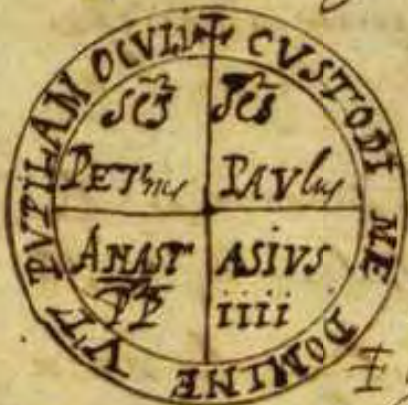 ✝ CVSTODI ME DOMINE VT PVPILAM OCVLI
SCS SCS
PETrus PAVlus
ANAST ASIVS
PP iiii